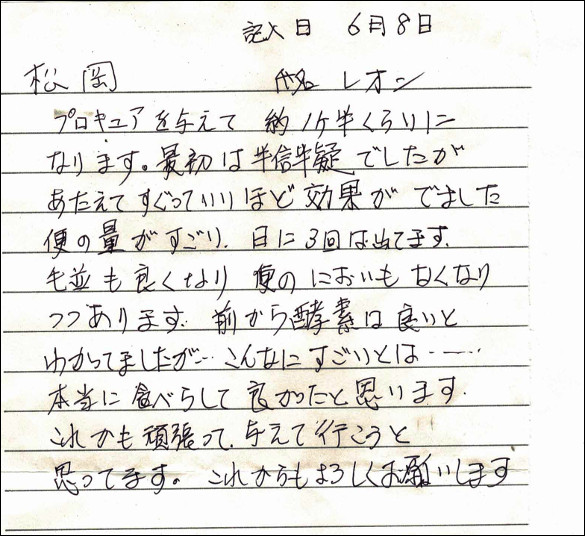 記入日 6月8日
松岡 氏名 レオン
プロキュアを与えて 約1ヶ半くらいに
なります。最初は半信半疑でしたが
あたえてすぐっていいほど効果がでました
便の量がすごい. 日に3回は出てます.
毛並も良くなり 便のにおいもなくなり
つつあります. 前から酵素は良いと
わかってましたが… こんなにすごいとは……
本当に食べらして良かったと思います.
これかも頑張って、与えて行こうと
思ってます。これからもよろしくお願いします